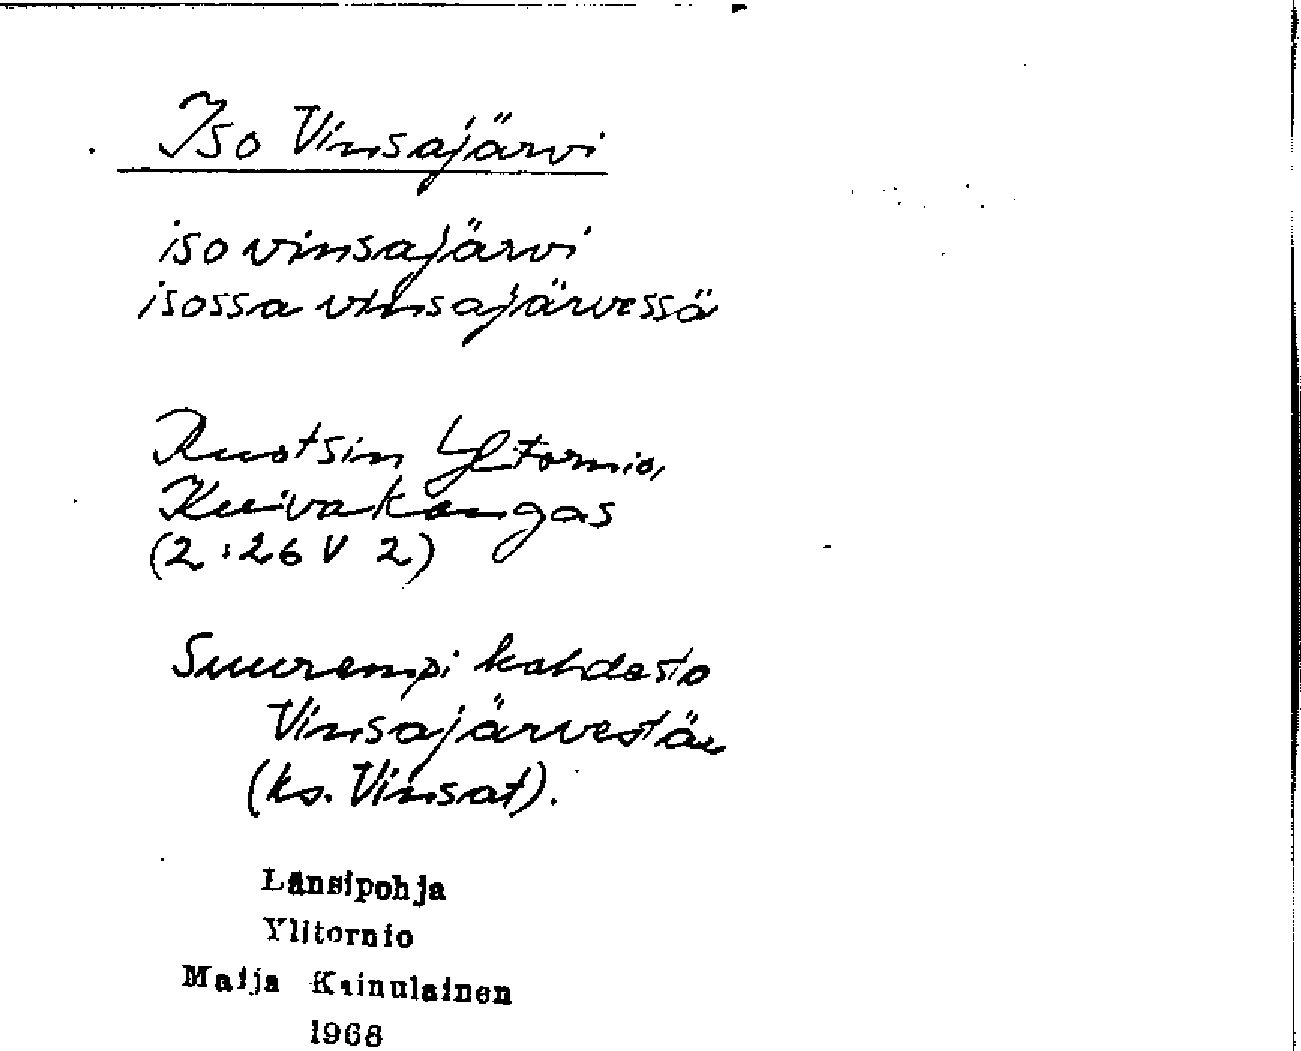 Iso Vinsajärvi
iso vinsajärvi
isossa vinsajärvessä
Ruotsin Ylitornio,
Kuivakangas
(2:26 V 2)
Suurempi kahdesta
Vinsajärvestä
(ks. Vinsat).
Länsipohja
Ylitornio
Maija Kainulainen
1966